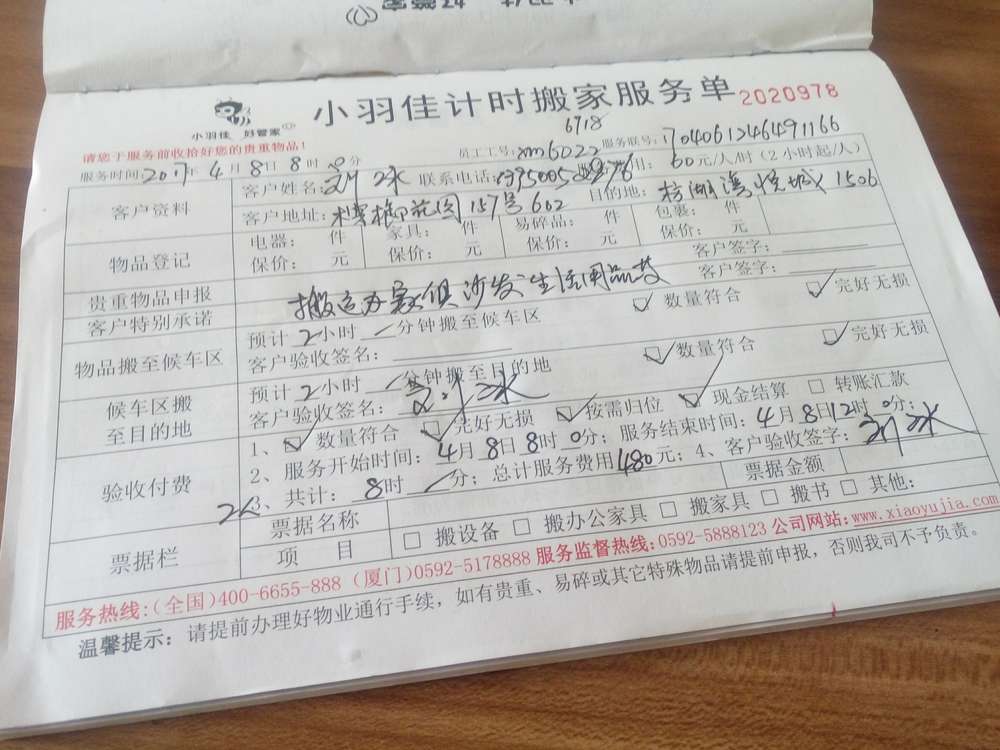 小羽佳计时搬家服务单 2020978
小羽佳 好管家
6718
请您于服务前收拾好您的贵重物品！ 员工工号：xm6022 服务联号：704061246491166
服务时间：2017年4月8日8时0分 联系电话： 60元/人/时（2小时起/人）
客户资料 客户姓名：刘冰 目的地：湖湾悦城 1506
客户地址：槟榔花园157号602
物品登记 电器： 件 家具： 件 易碎品： 件 包裹： 件
保价： 元 保价： 元 保价： 元 保价： 元
贵重物品申报 客户签字：
客户特别承诺 搬运办 家俱沙发生活用品 客户签字：
物品搬至候车区 预计2小时 分钟搬至候车区 数量符合 完好无损
客户验收签名：
候车区搬至目的地 预计2小时 分钟搬至目的地 数量符合 完好无损
客户验收签名：刘冰
验收付费 1、数量符合 完好无损 按需归位 现金结算 转账汇款
2、服务开始时间：4月8日8时0分；服务结束时间：4月8日12时0分；
2人 3、共计：8时 分；总计服务费用480元；4、客户验收签字：刘冰
票据栏 票据名称 票据金额
项 目 搬设备 搬办公家具 搬家具 搬书 其他：
服务热线：（全国）400-6655-888（厦门）0592-5178888 服务监督热线：0592-5888123 公司网站：www.xiaoyujia.com
温馨提示：请提前办理好物业通行手续，如有贵重、易碎或其它特殊物品请提前申报，否则我司不予负责。